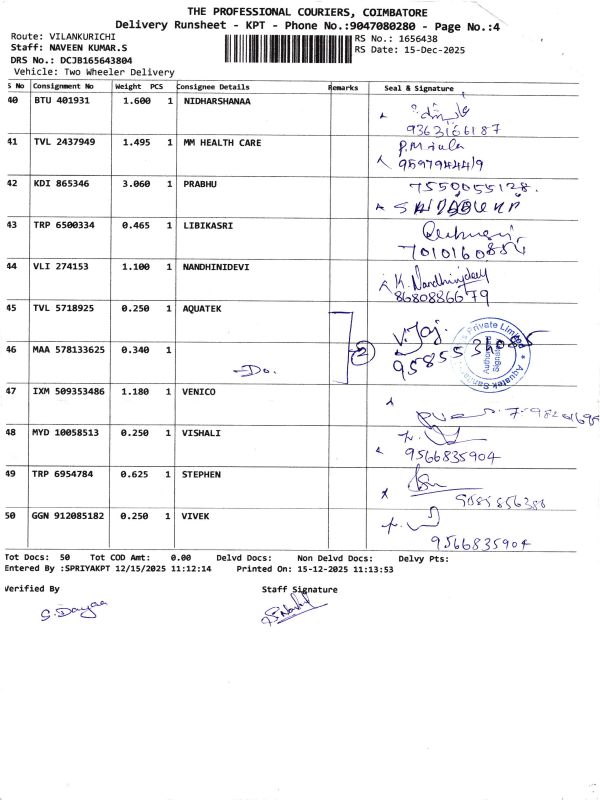 THE PROFESSIONAL COURIERS, COIMBATORE
Delivery Runsheet - KPT - Phone No.:9047080280 - Page No.:4
Route: VILANKURICHI
RS No.: 1656438
Staff: NAVEEN KUMAR.S
RS Date: 15-Dec-2025
DRS No.: DCJB165643804
Vehicle: Two Wheeler Delivery
S No Consignment No Weight PCS Consignee Details Remarks Seal & Signature
40 BTU 401931 1.600 1 NIDHARSHANAA
9363166187
41 TVL 2437949 1.495 1 MM HEALTH CARE
9597944419
42 KDI 865346 3.060 1 PRABHU 7550055128.
43 TRP 6500334 0.465 1 LIBIKASRI
44 VLI 274153 1.100 1 NANDHINIDEVI K. Nandhinidevi
8680886679
45 TVL 5718925 0.250 1 AQUATEK V. Jaj.
46 MAA 578133625 0.340 1 2
Do.
47 IXM 509353486 1.180 1 VENICO
48 MYD 10058513 0.250 1 VISHALI
9566835904
49 TRP 6954784 0.625 1 STEPHEN
50 GGN 912085182 0.250 1 VIVEK
9566835904
Tot Docs: 50 Tot COD Amt: 0.00 Delvd Docs: Non Delvd Docs: Delvy Pts:
Entered By :SPRIYAKPT 12/15/2025 11:12:14 Printed On: 15-12-2025 11:13:53
Verified By Staff Signature
S. Dayaa